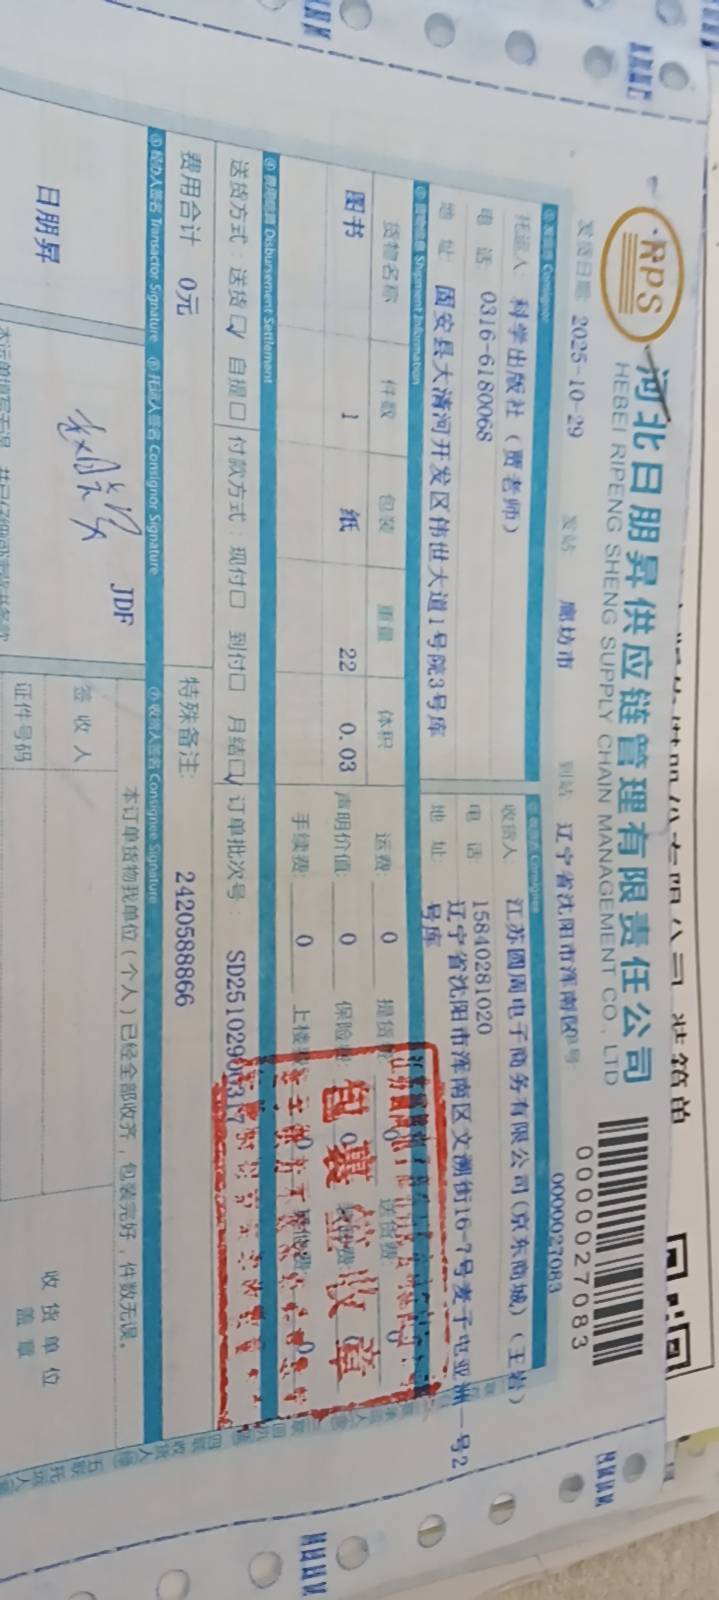 RPS
河北日朋昇供应链管理有限责任公司
HEBEI RIPENG SHENG SUPPLY CHAIN MANAGEMENT CO., LTD
0000027083
发货日期: 2025-10-29 发站: 廊坊市 到站: 辽宁省沈阳市浑南区 0000027083
Consignor
托运人: 科学出版社（贾老师）
电 话: 0316-6180068
地 址: 固安县大清河开发区伟世大道1号院3号库
收货人: 江苏圆周电子商务有限公司(京东商城)（王岩）
电 话: 15840281020
地 址: 辽宁省沈阳市浑南区文溯街16-7号麦子屯亚洲一号2号库
Shipment Information
货物名称 件数 包装 重量 体积
图书 1 纸 22 0.03
运费: 0 提货费: 0 送货费: 0
声明价值: 0 保险费: 0
手续费: 0 上楼费: 0
包裹签收章
④ 费用结算 Disbursement Settlement
送货方式: 送货☑ 自提口 付款方式: 现付口 到付口 月结☑ 订单批次号:
费用合计 0元 特殊备注: 2420588866
⑤ 经办人签名 Transactor Signature ⑥ 托运人签名 Consignor Signature ⑦ 收货人签名 Consignee Signature
日朋昇
JDF
本订单货物我单位（个人）已经全部收齐，包装完好，件数无误。
签收人
证件号码
收货单位
盖章